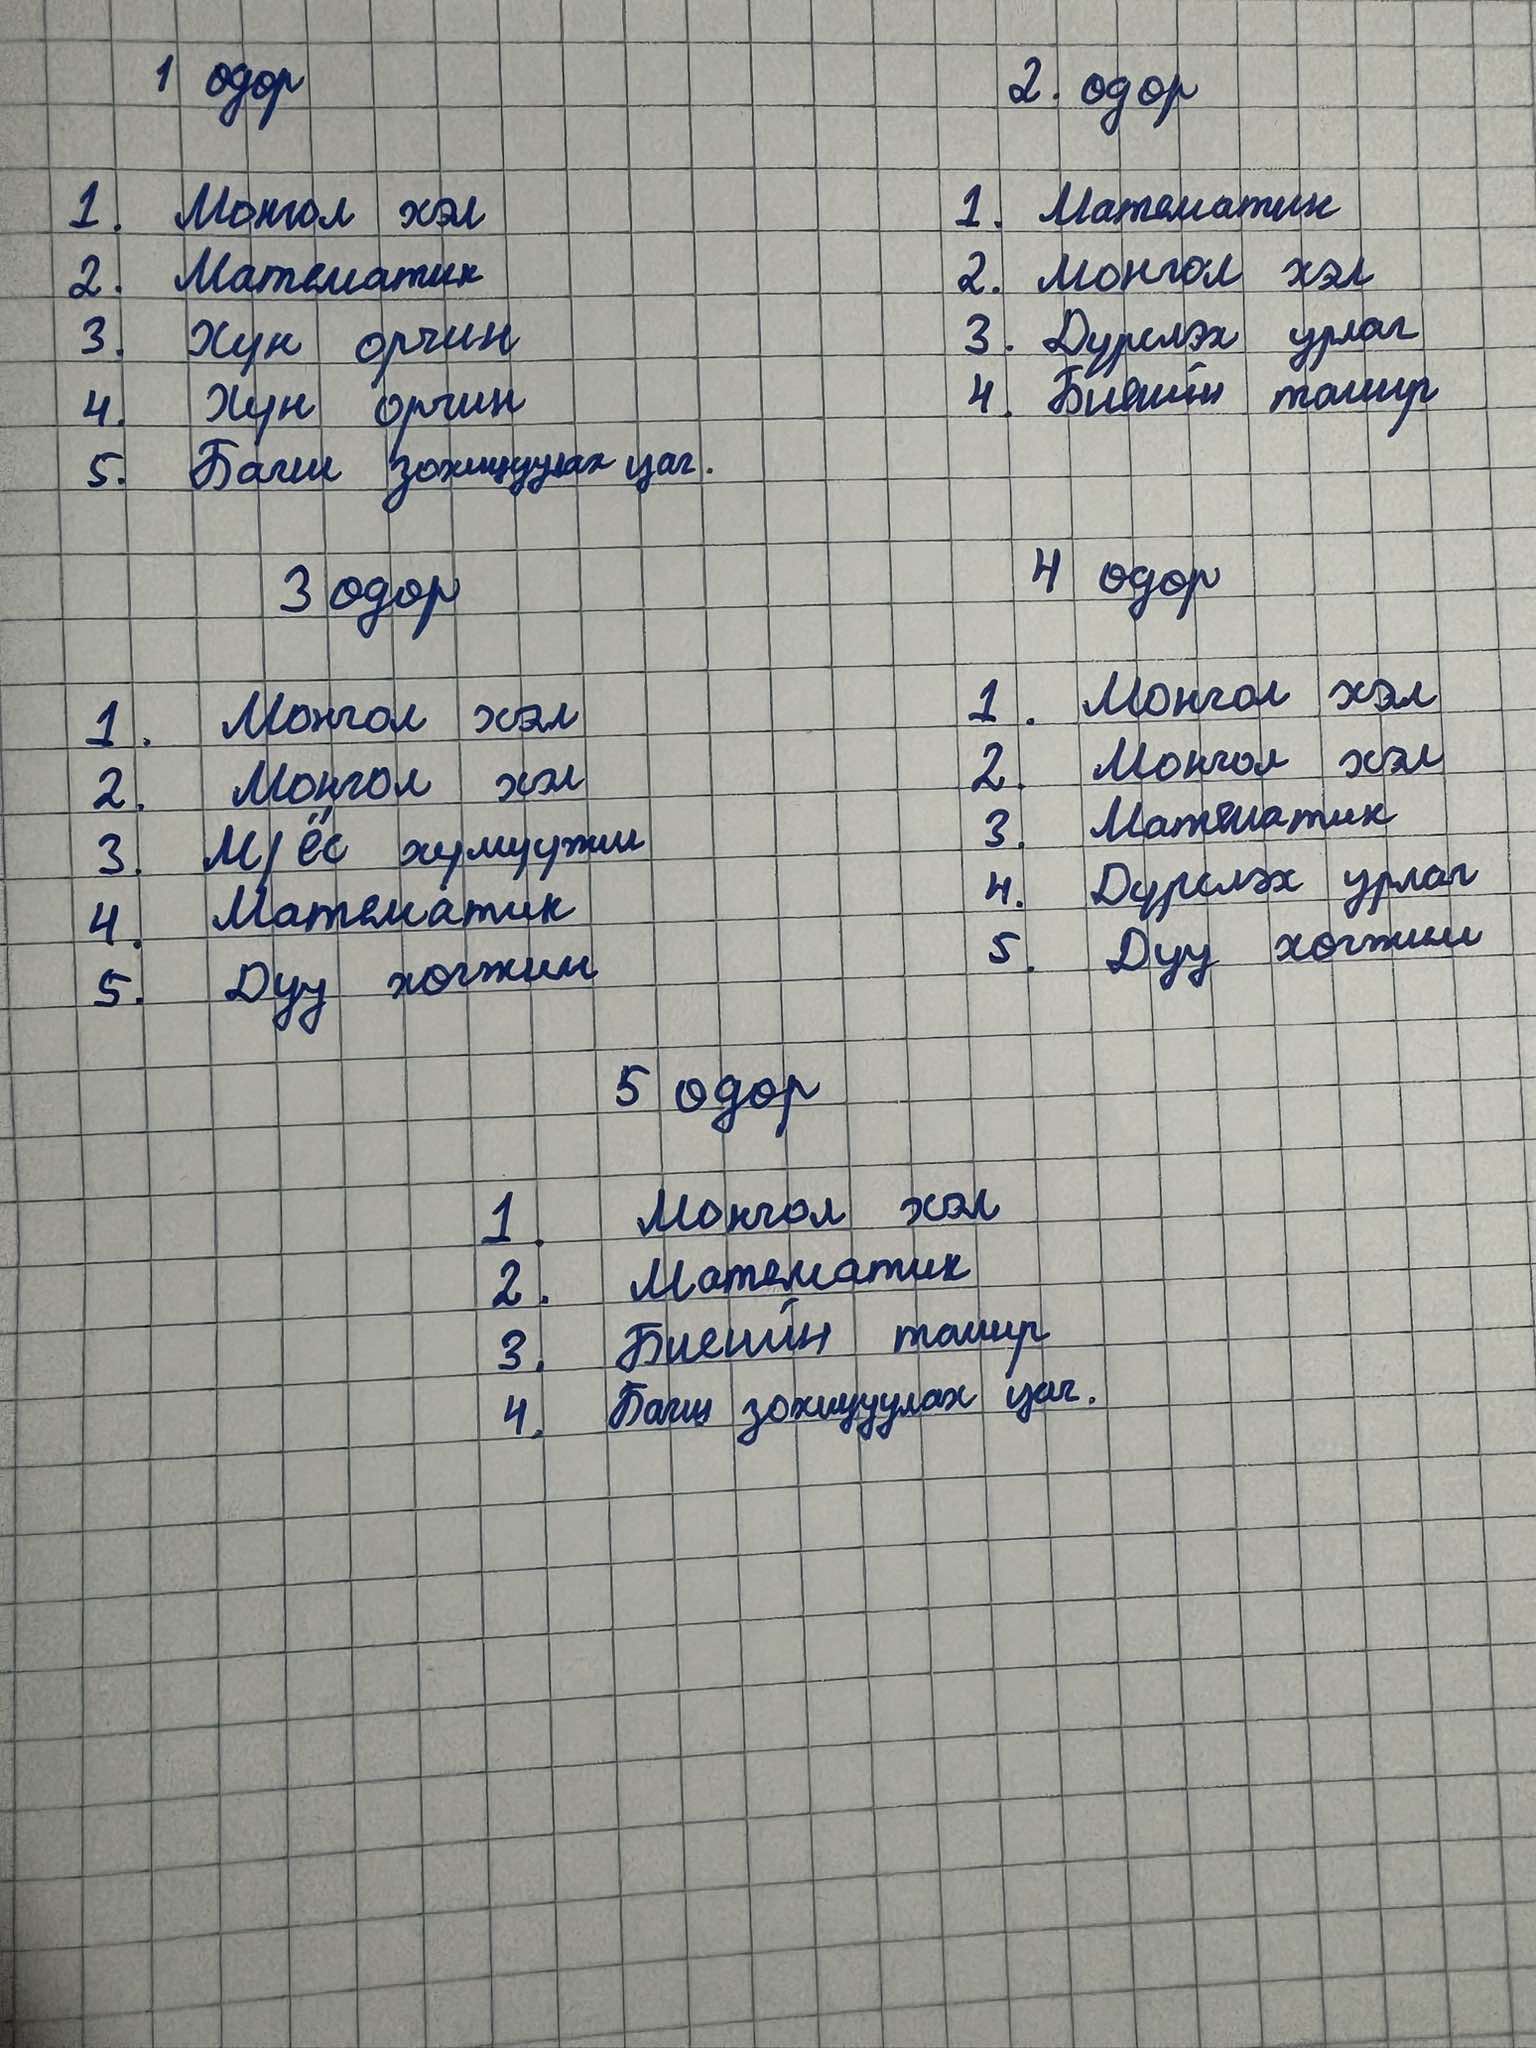 1 одор
1. Монгол хэл
2. Математик
3. Хун орчин
4. Хун орчин
5. Багш зохицуулах цаг.
2. одор
1. Математик
2. Монгол хэл
3. Дурслэх урлаг
4. Биеийн тамир
3 одор
1. Монгол хэл
2. Монгол хэл
3. М/ёс хумуужил
4. Математик
5. Дуу хогжим
4 одор
1. Монгол хэл
2. Монгол хэл
3. Математик
4. Дурслэх урлаг
5. Дуу хогжим
5 одор
1. Монгол хэл
2. Математик
3. Биеийн тамир
4. Багш зохицуулах цаг.